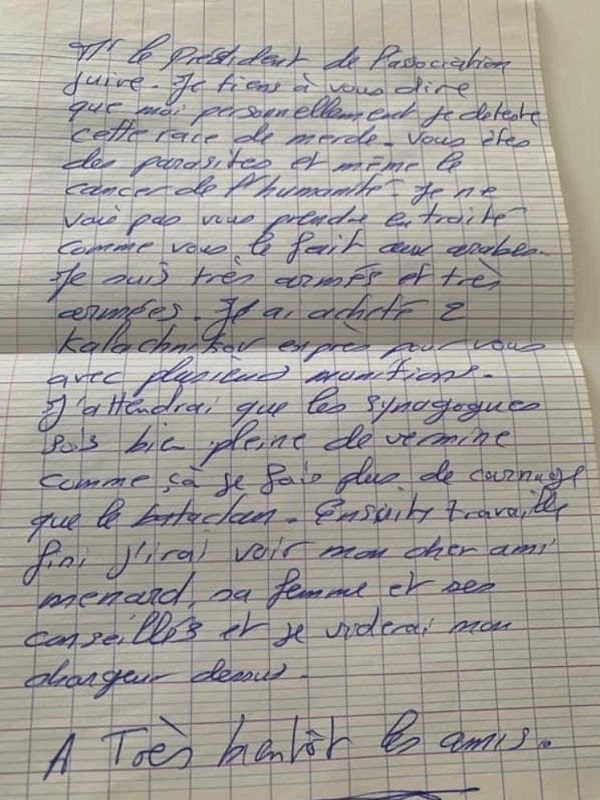 Mr le Président de l'association
juive. Je tiens à vous dire
que moi personnellement je deteste
cette race de merde. Vous êtes
des parasites et même le
cancer de l'humanité. Je ne
vais pas vous prendre en traité
comme vous le fait aux arabes.
Je suis très armés et très
armées. J'ai acheté 2
Kalachnikov exprès pour vous
avec plusieurs munitions.
J'attendrai que les synagogues
sois bien pleine de vermine
comme çà je fais plus de carnage
que le bataclan. Ensuite travaille
fini j'irai voir mon cher ami
menard, sa femme et ses
conseillés et je viderai mon
chargeur dessus.
A Très bientôt les amis.